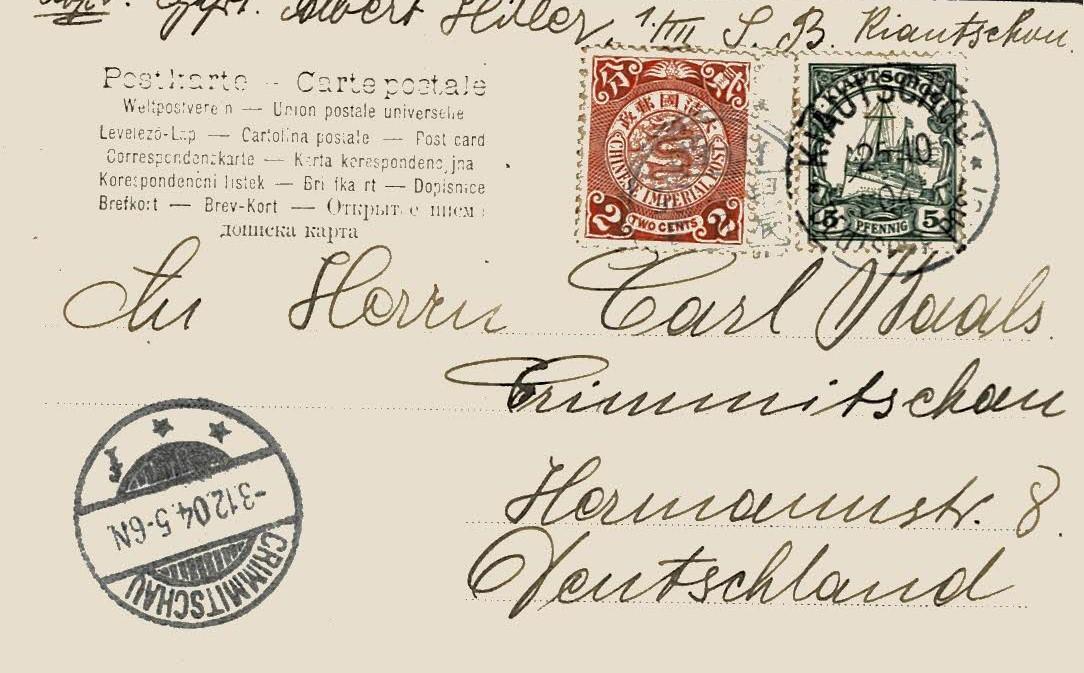 Albert Hitler, 1./III S. B. Kiautschou.
Postkarte — Carte postale
Weltpostverein — Union postale universelle
Levelező-Lap — Cartolina postale — Post card
Correspondenzkarte — Karta korespondencyjna
Korespondenční lístek — Dopisnice
Brefkort — Brev-Kort — Открытое письмо
дописна карта
大清國郵政
CHINESE IMPERIAL POST
2 TWO CENTS 2
KIAUTSCHOU
5 PFENNIG 5
KIAUTSCHOU
25 10
04
An Herrn Carl Waals
Crimmitschau
Hermannstr. 8.
Deutschland
-3.12.04. 5-6N.
CRIMMITSCHAU